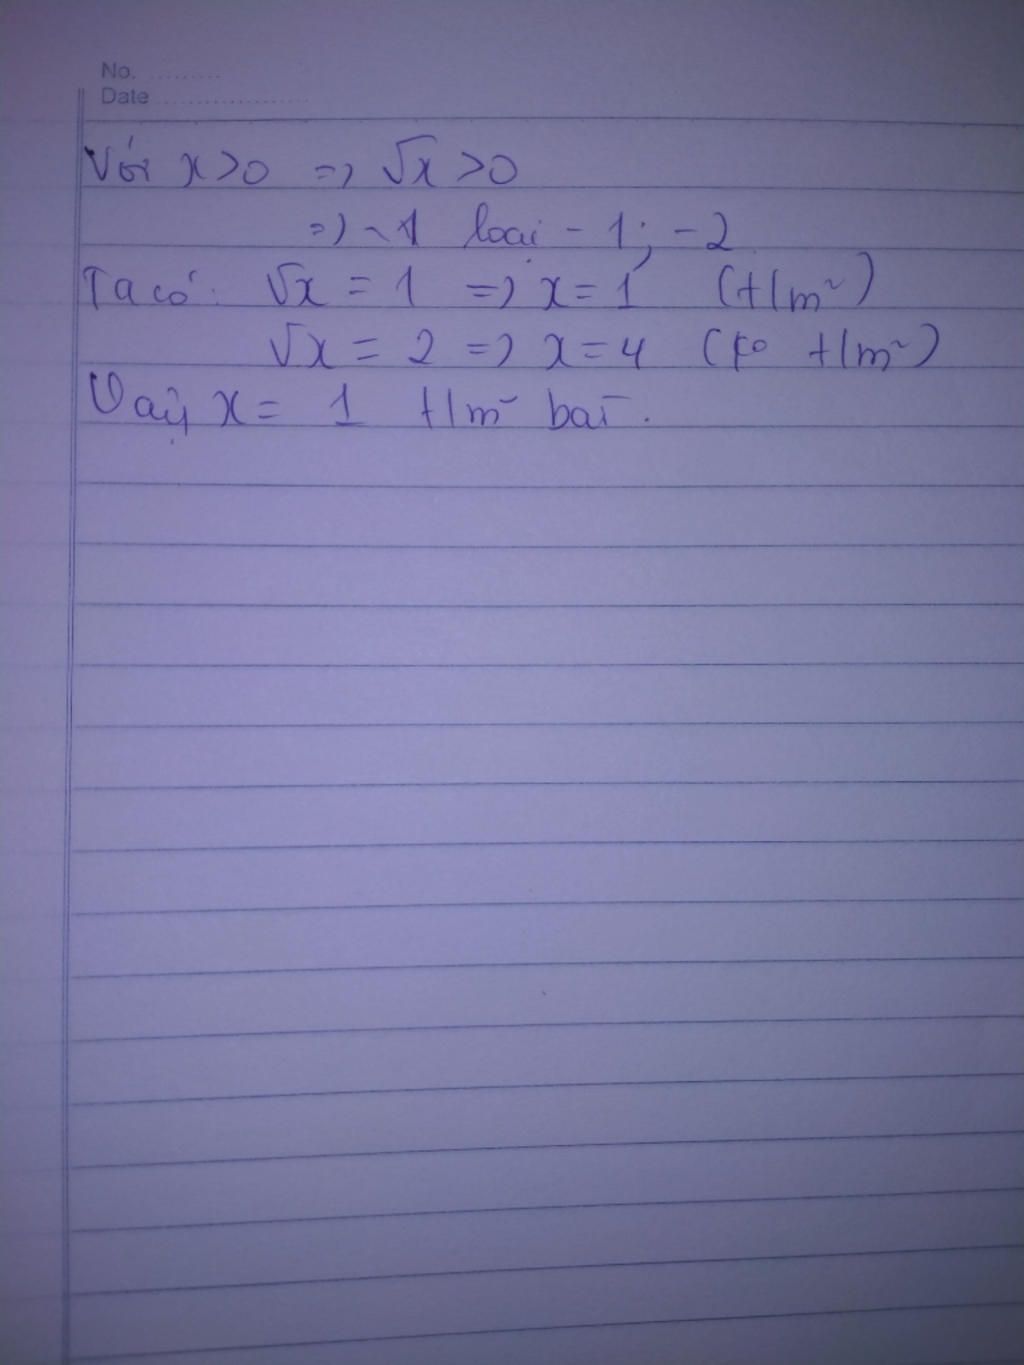 No. .........
Date ...................
Với x>0 => √x >0
=> loại -1; -2
Ta có: √x = 1 => x=1 (t/m)
√x = 2 => x=4 (ko t/m)
Vậy x = 1 t/m bài.